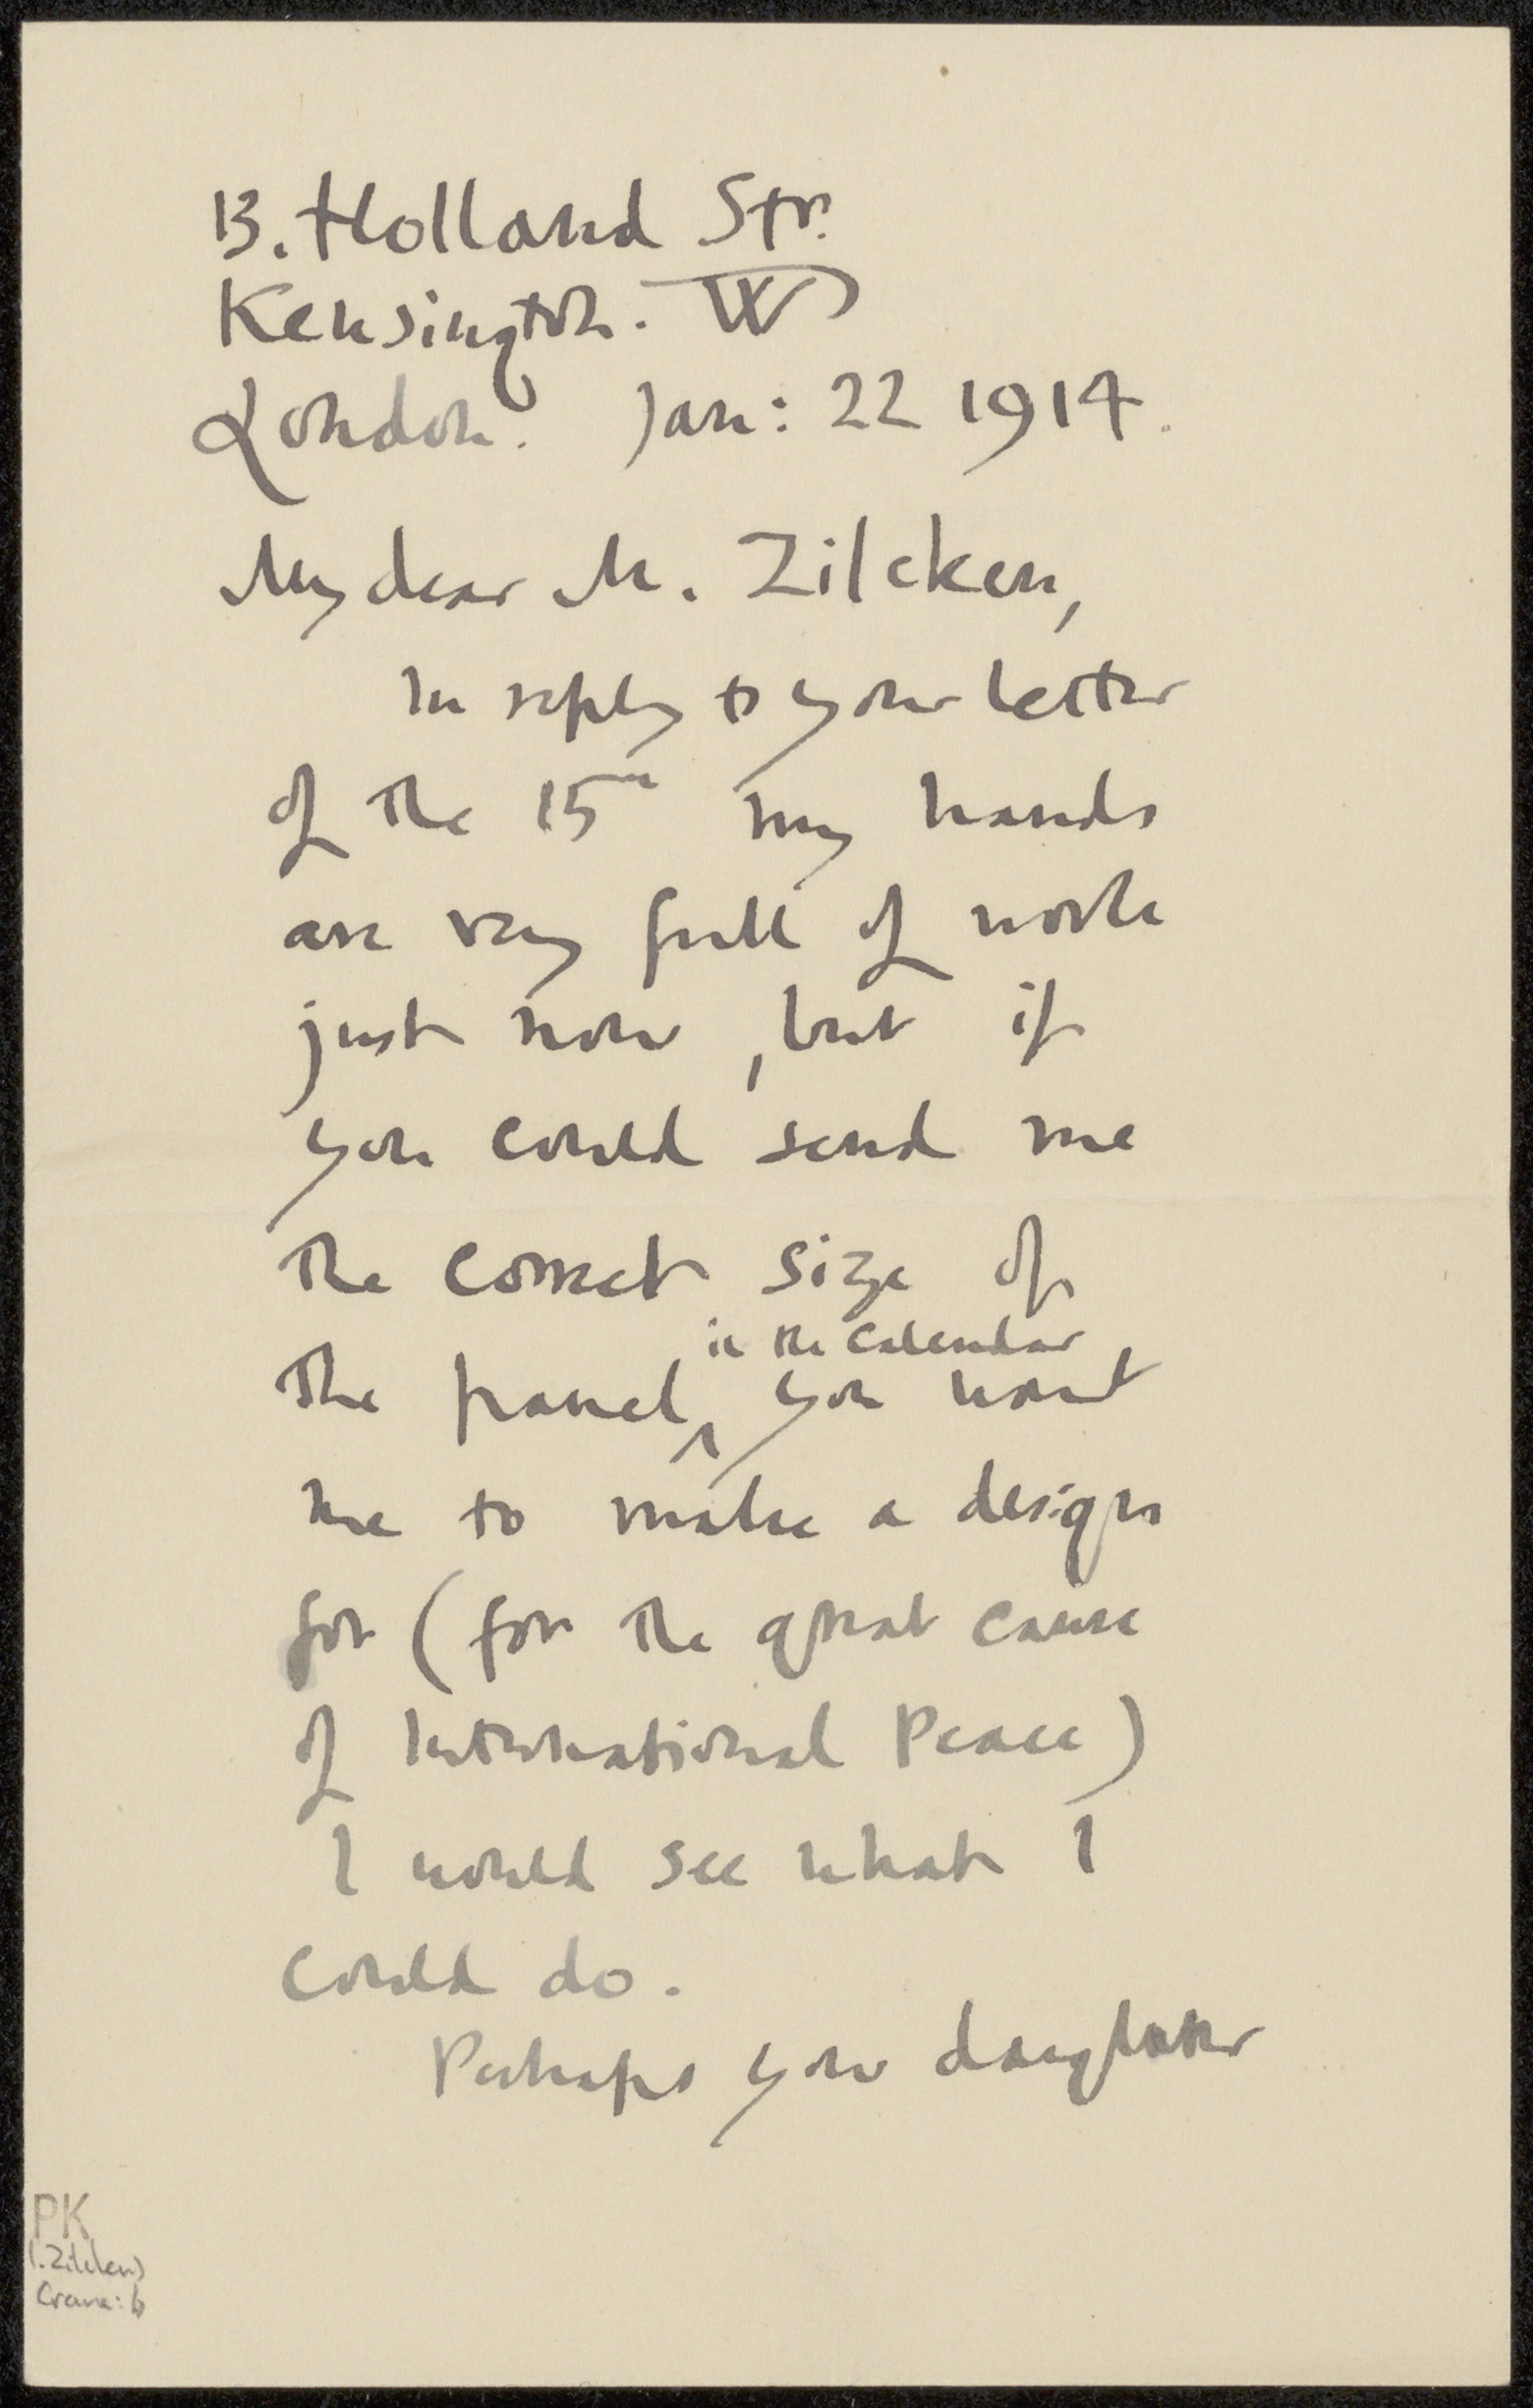 13. Holland Str.
Kensington. W
London. Jan: 22 1914.
My dear M. Zilcken,
In reply to your letter
of the 15th my hands
are very full of work
just now, but if
you could send me
the correct size of
in the Calendar
the panel ^ you want
me to make a design
for (for the great cause
of International Peace)
I would see what I
could do.
Perhaps your daughter
PK
(.Zilcken)
Crane: 6